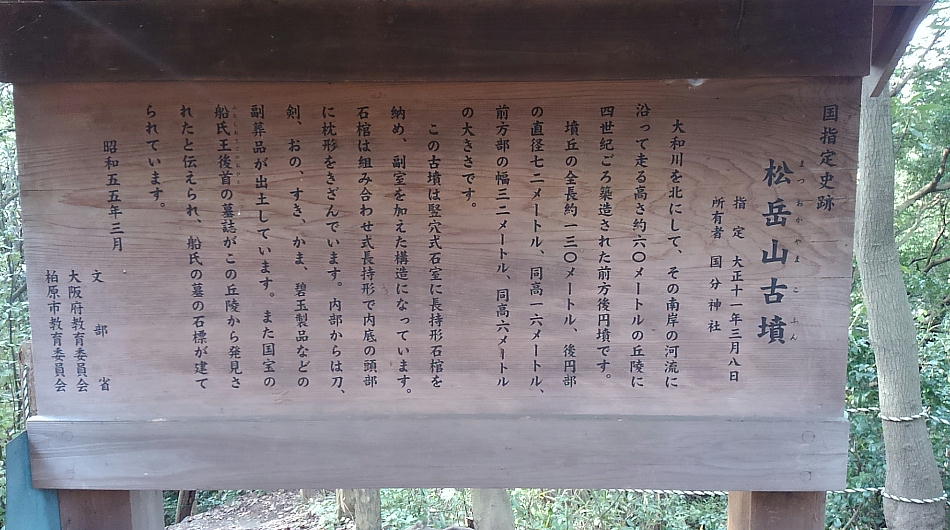 国指定史跡
まつおかやまこふん
松岳山古墳
指定 大正十一年三月八日
所有者 国分神社
大和川を北にして、その南岸の河流に
沿って走る高さ約六〇メートルの丘陵に
四世紀ごろ築造された前方後円墳です。
墳丘の全長約一三〇メートル、後円部
の直径七二メートル、同高一六メートル、
前方部の幅三二メートル、同高六メートル
の大きさです。
この古墳は竪穴式石室に長持形石棺を
納め、副室を加えた構造になっています。
石棺は組み合わせ式長持形で内底の頭部
に枕形をきざんでいます。内部からは刀、
剣、おの、すき、かま、碧玉製品などの
副葬品が出土しています。また国宝の
船氏王後首の墓誌がこの丘陵から発見さ
れたと伝えられ、船氏の墓の石標が建て
られています。
昭和五五年三月
文部省
大阪府教育委員会
柏原市教育委員会